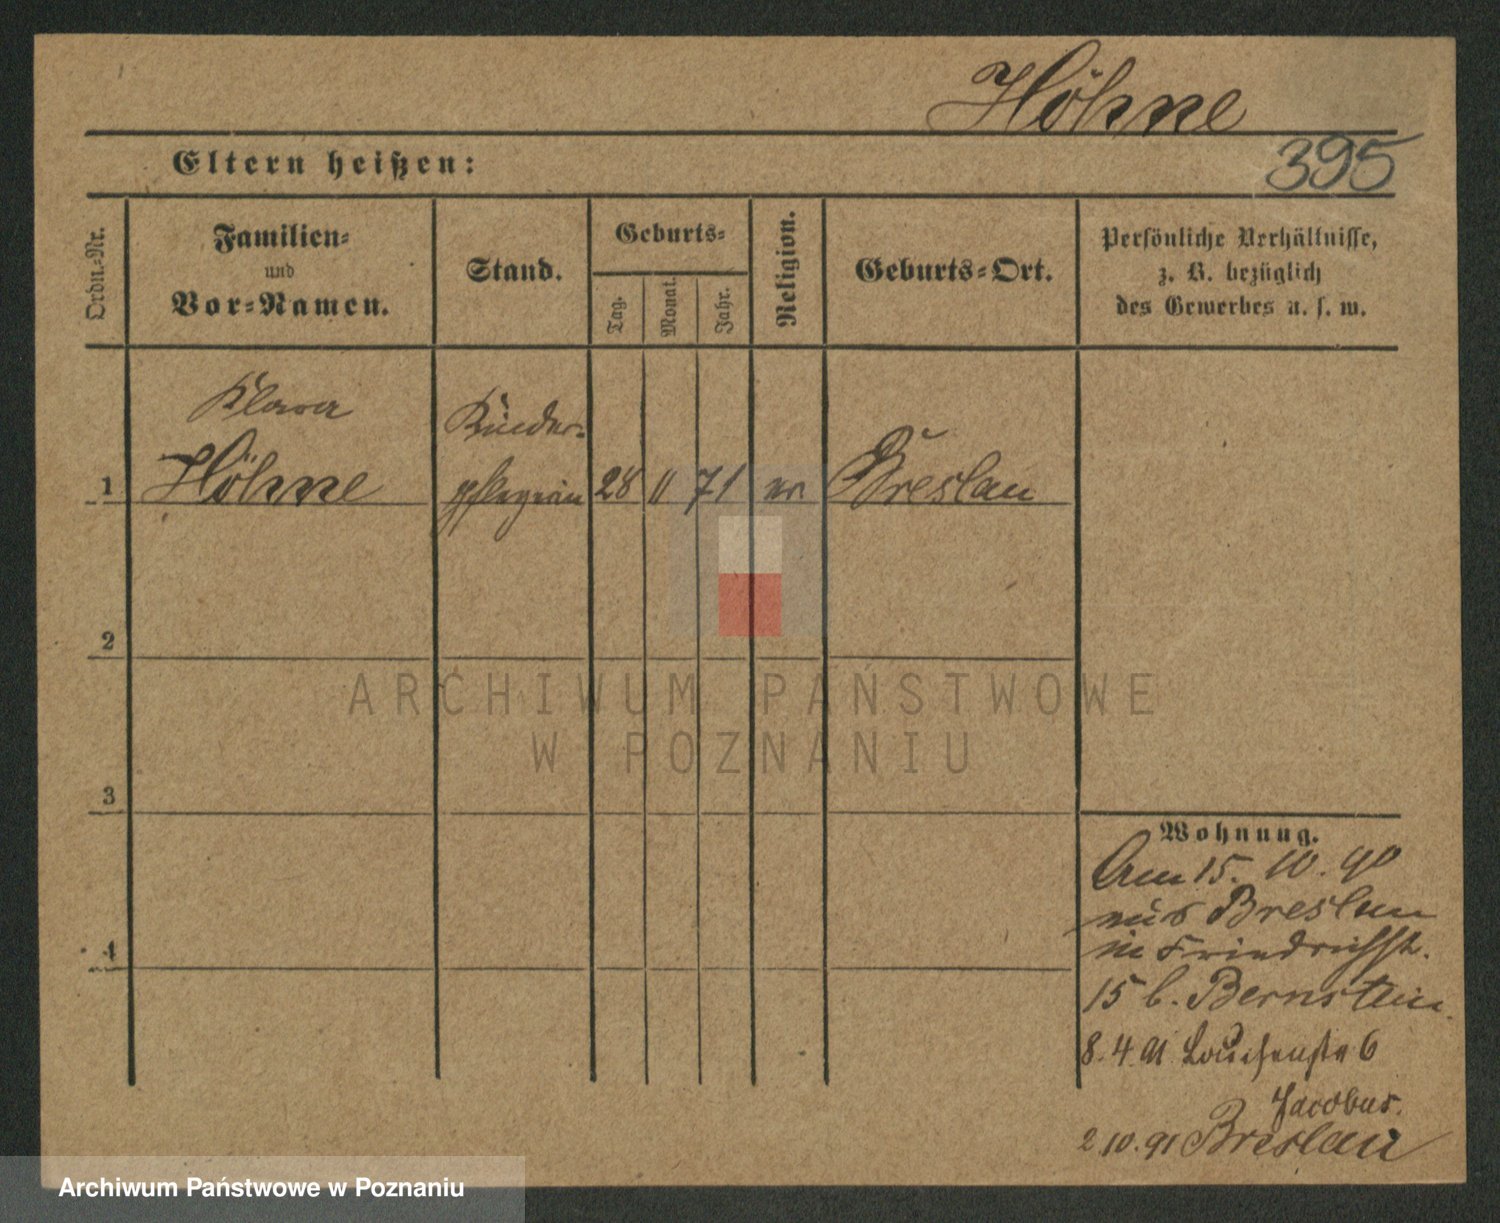 Höhne
Eltern heißen:
395
Ordn.-Nr.
Familien-
und
Vor-Namen.
Stand.
Geburts-
Tag.
Monat.
Jahr.
Religion.
Geburts-Ort.
Persönliche Verhältnisse,
z. B. bezüglich
des Gewerbes u. s. w.
Klara
Kinder-
1 Höhne pflegerin 28 11 71 ev Breslau
2
3
4
Wohnung.
Am 15. 10. 90
aus Breslau
in Friedrichstr.
15 b. Bernstein.
8. 4. 91 Louisenstr 6
Jacobus.
2. 10. 91 Breslau
ARCHIWUM PAŃSTWOWE
W POZNANIU
Archiwum Państwowe w Poznaniu